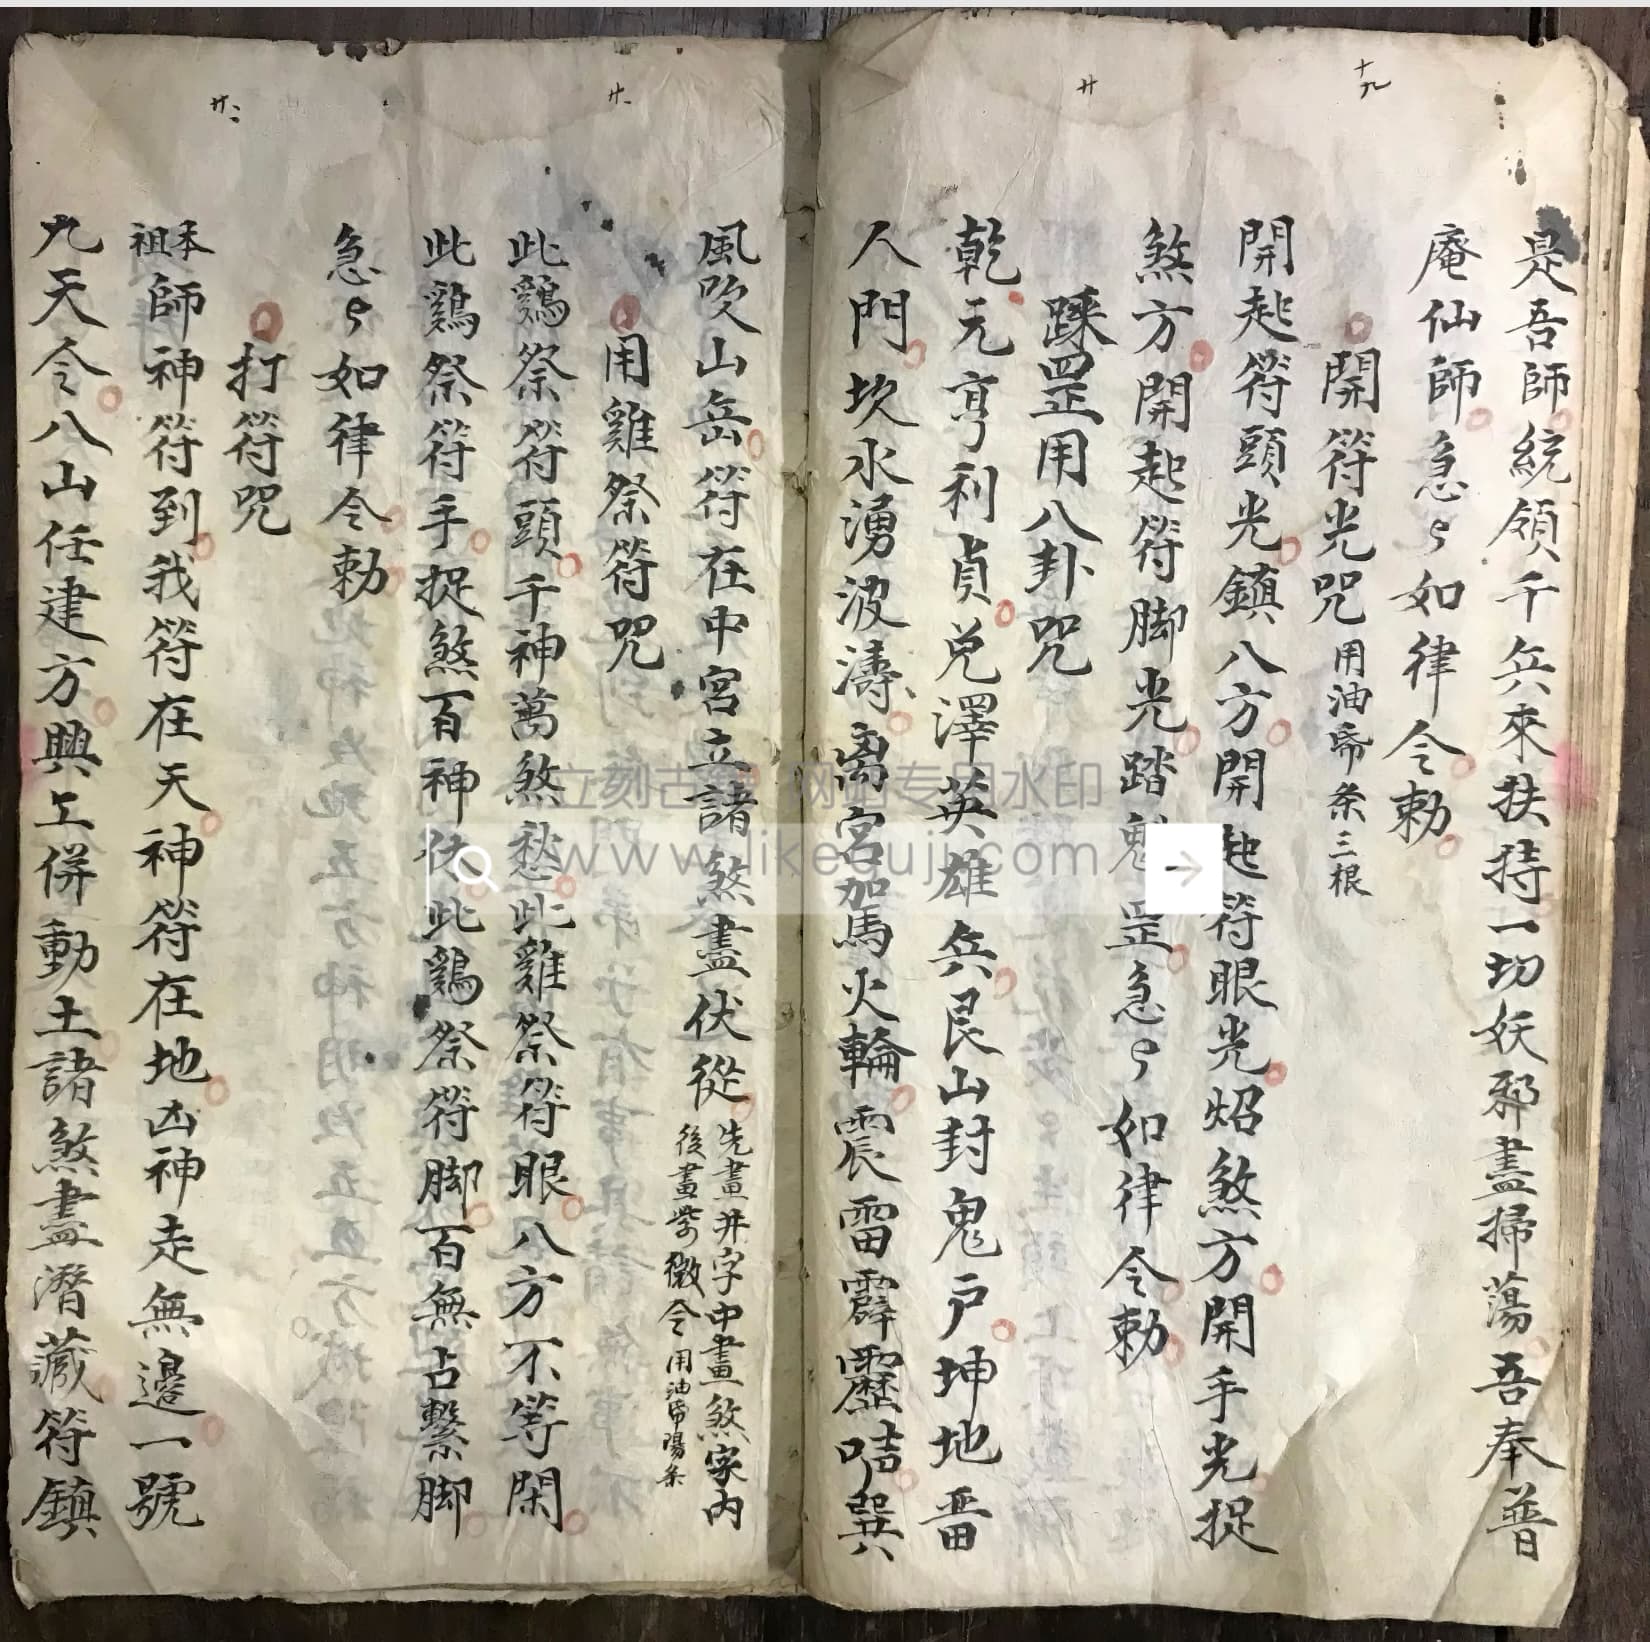 十九
是吾師統領千兵來扶持一切妖邪盡掃蕩吾奉普
庵仙師急々如律令勅
開符光咒用油帋条三根
開起符頭光鎮八方開起符眼光炤煞方開手光捉
煞方開起符脚光踏罡急々如律令勅
廿
蹂罡用八卦咒
乾元亨利貞兌澤英雄兵艮山封鬼户坤地晋
人門坎水湧波濤离宮加馬火輪震雷霹靂咭巽
廿一
風吹山岳符在中宮立諸煞盡伏從
先畫井字中畫煞字内
後畫紫微令用油帋陽条
用雞祭符咒
此鷄祭符頭千神萬煞愁此雞祭符眼八方不等閑
此鷄祭符手捉煞百神伏此鷄祭符脚百無占繫脚
急々如律令勅
廿二
打符咒
本祖師神符到我符在天神符在地凶神走無邉一號
九天令八山任建方興工併動土諸煞盡潛藏符鎮
立刻古 网 专用水印
www.likeguji.com